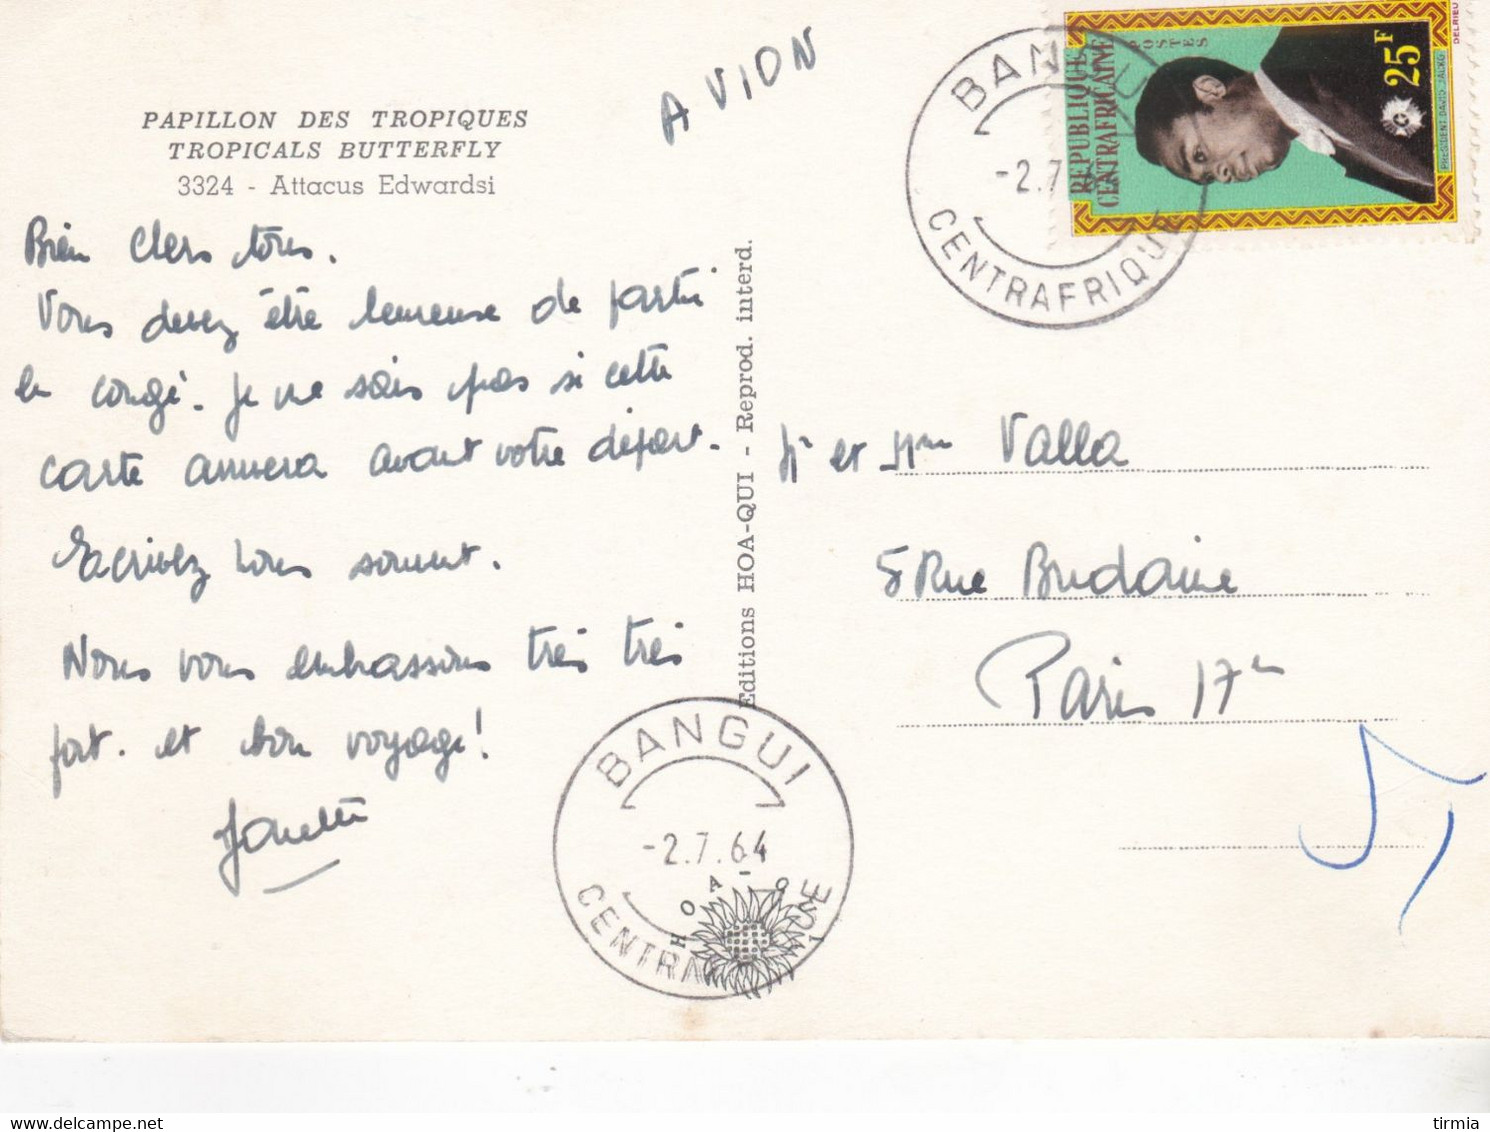 PAPILLON DES TROPIQUES
TROPICALS BUTTERFLY
3324 - Attacus Edwardsi
Bien Chers tous.
Vous devez être heureuse de partir
en congé. Je ne sais pas si cette
carte arrivera avant votre départ.
Ecrivez nous souvent.
Nous vous embrassons très très
fort. et bon voyage!
Janette
Editions HOA-QUI - Reprod. interd.
AVION
BANGUI
-2.7
CENTRAFRIQUE
REPUBLIQUE
CENTRAFRICAINE
POSTES
25F
PRESIDENT DAVID DACKO
DELRIEU
Mr et Mme Valla
5 Rue Brudaine
Paris 17e
BANGUI
-2.7.64
CENTRAFRIQUE
HOA-QUI